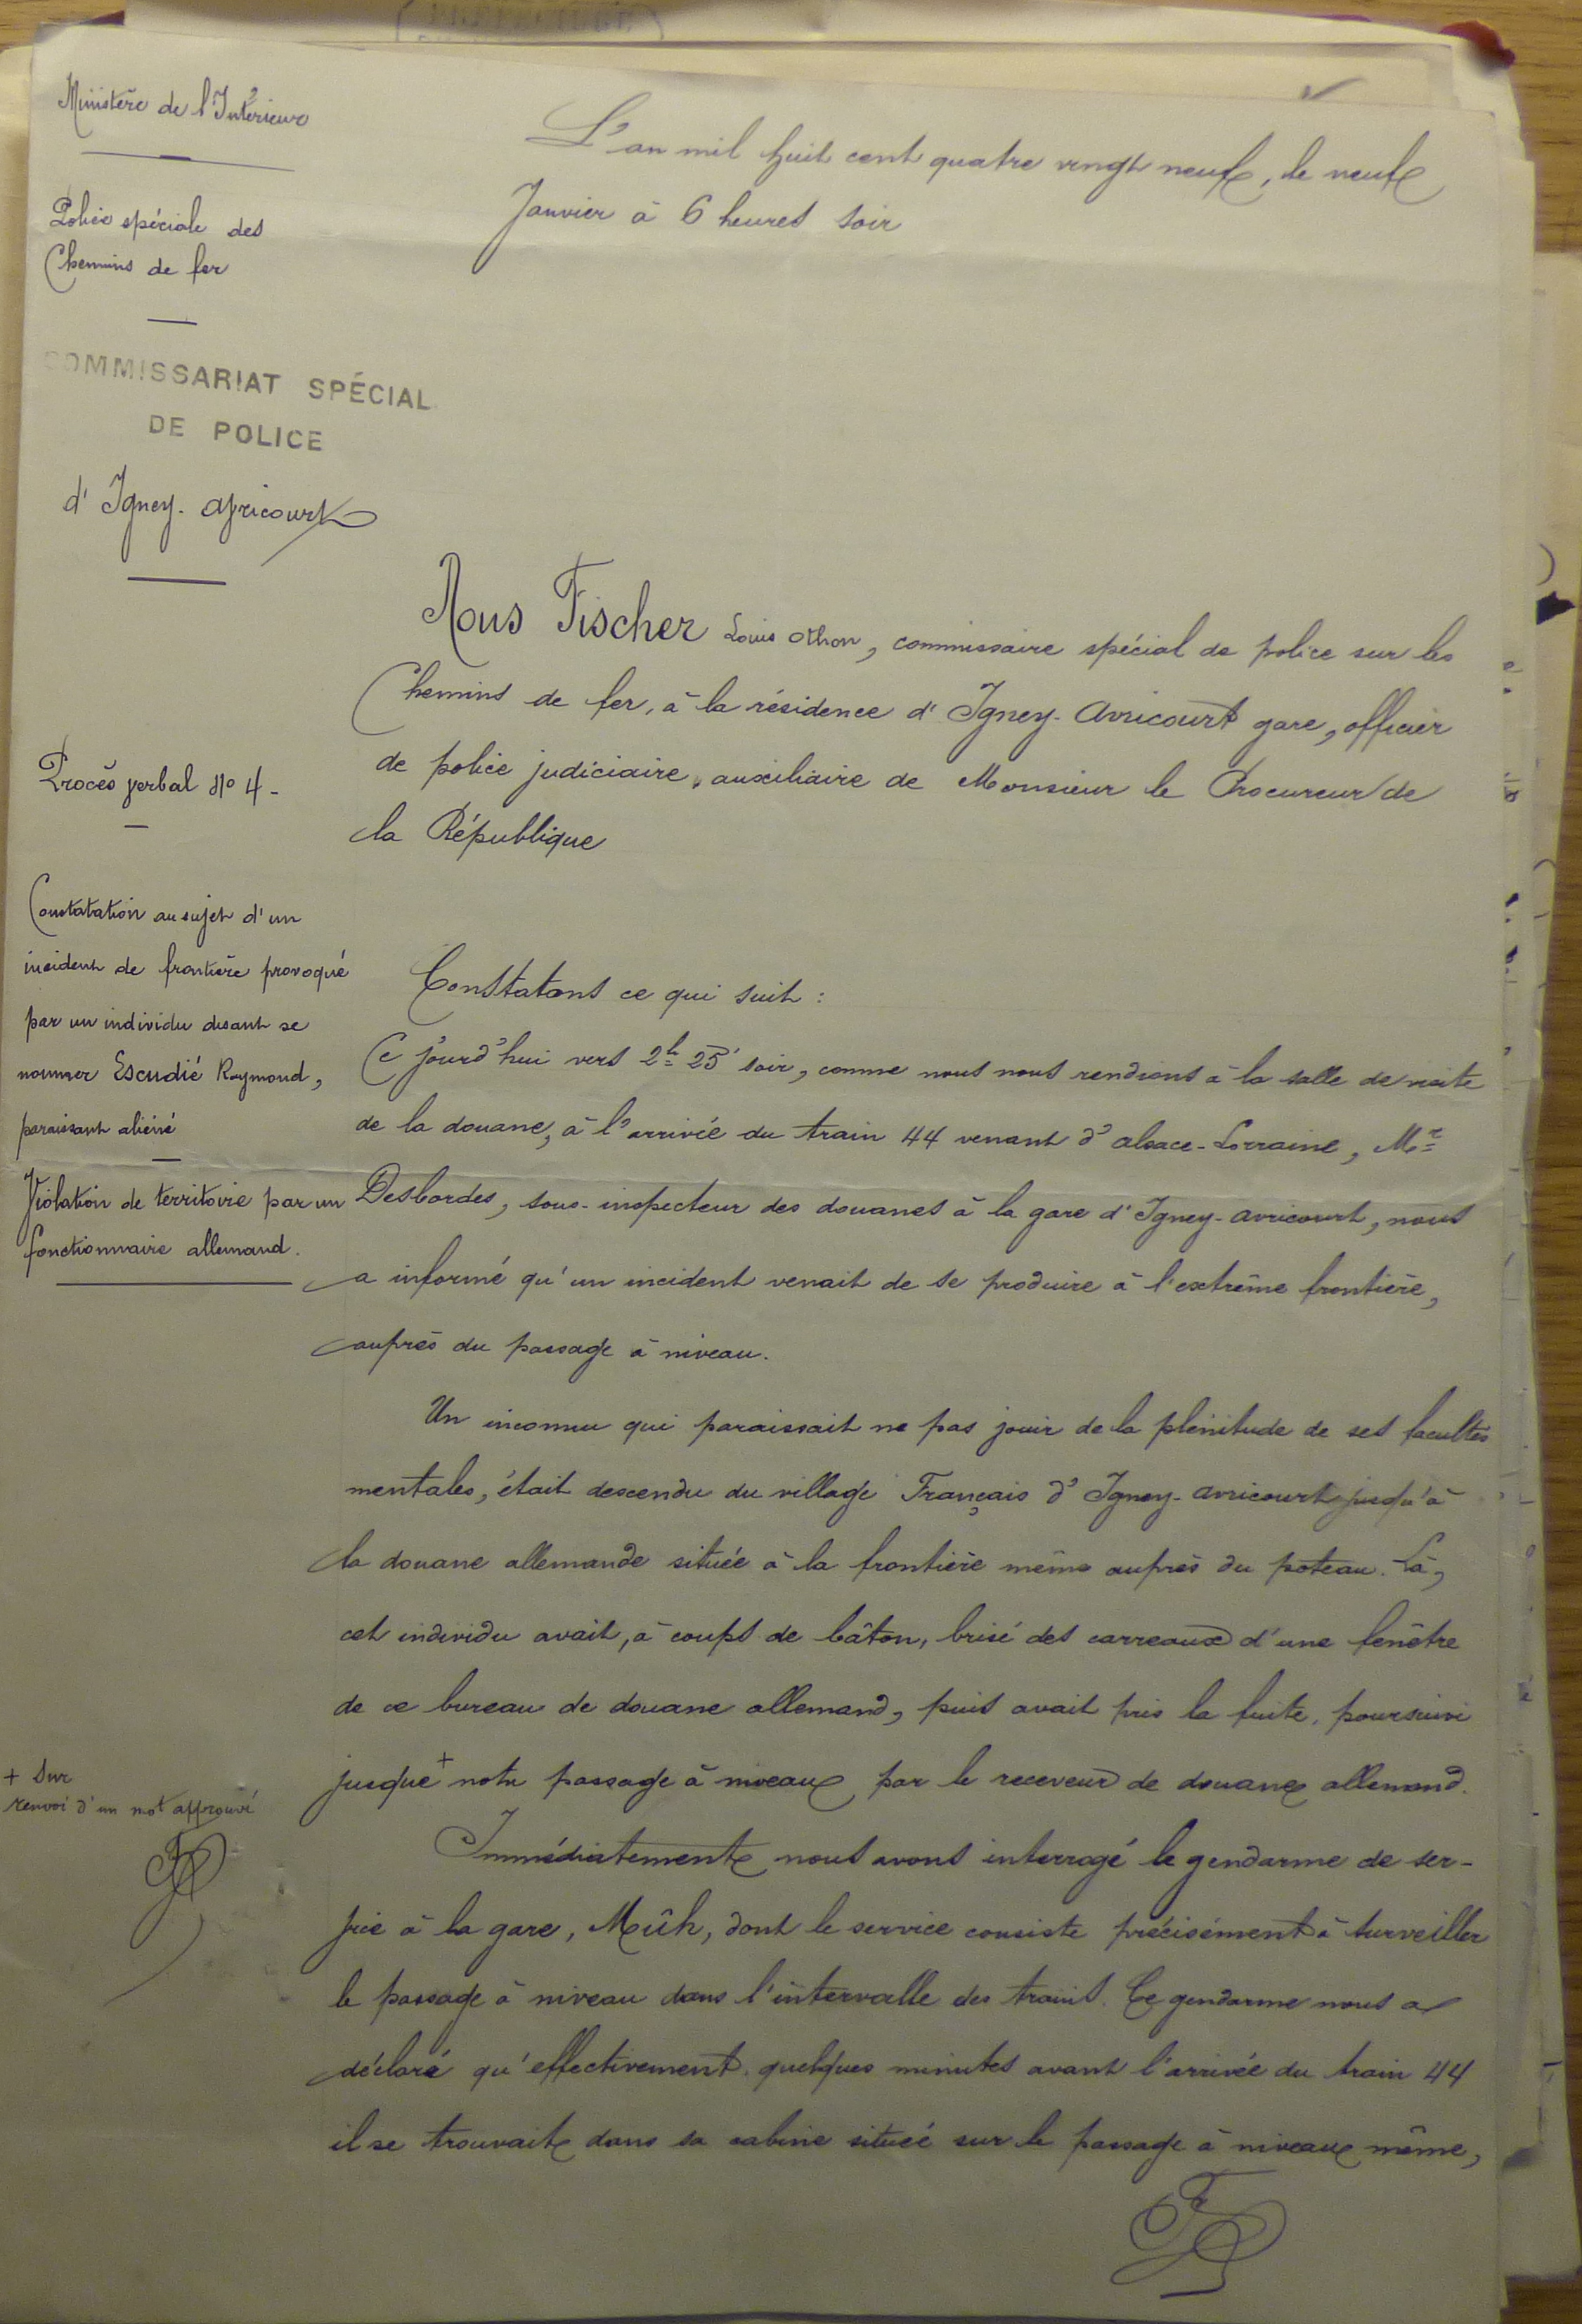 Ministère de l'Intérieur
Police spéciale des
Chemins de fer
COMMISSARIAT SPÉCIAL
DE POLICE
d'Igney-Avricourt
Procès verbal No 4-
Constatation au sujet d'un
incident de frontière provoqué
par un individu disant se
nommer Escudié Raymond,
paraissant aliéné
Violation de territoire par un
fonctionnaire allemand.
+ sur
renvoi d'un mot approuvé
L'an mil huit cent quatre vingt neuf, le neuf
Janvier à 6 heures soir
Nous Fischer Louis Othon, commissaire spécial de police sur les
Chemins de fer, à la résidence d'Igney-Avricourt gare, officier
de police judiciaire, auxiliaire de Monsieur le Procureur de
la République
Constatons ce qui suit :
Ce jourd'hui vers 2h 25' soir, comme nous nous rendions à la salle de visite
de la douane, à l'arrivée du train 44 venant d'Alsace-Lorraine, Mr
Desbordes, sous-inspecteur des douanes à la gare d'Igney-Avricourt, nous
a informé qu'un incident venait de se produire à l'extrême frontière,
auprès du passage à niveau.
Un inconnu qui paraissait ne pas jouir de la plénitude de ses facultés
mentales, était descendu du village Français d'Igney-Avricourt jusqu'à
la douane allemande située à la frontière même auprès du poteau. Là,
cet individu avait, à coups de bâton, brisé des carreaux d'une fenêtre
de ce bureau de douane allemand, puis avait pris la fuite, poursuivi
jusque + notre passage à niveau par le receveur de douane allemand.
Immédiatement nous avons interrogé le gendarme de ser-
vice à la gare, Mûh, dont le service consiste précisément à surveiller
le passage à niveau dans l'intervalle des trains. Ce gendarme nous a
déclaré qu'effectivement, quelques minutes avant l'arrivée du train 44
il se trouvait dans sa cabine située sur le passage à niveau même,